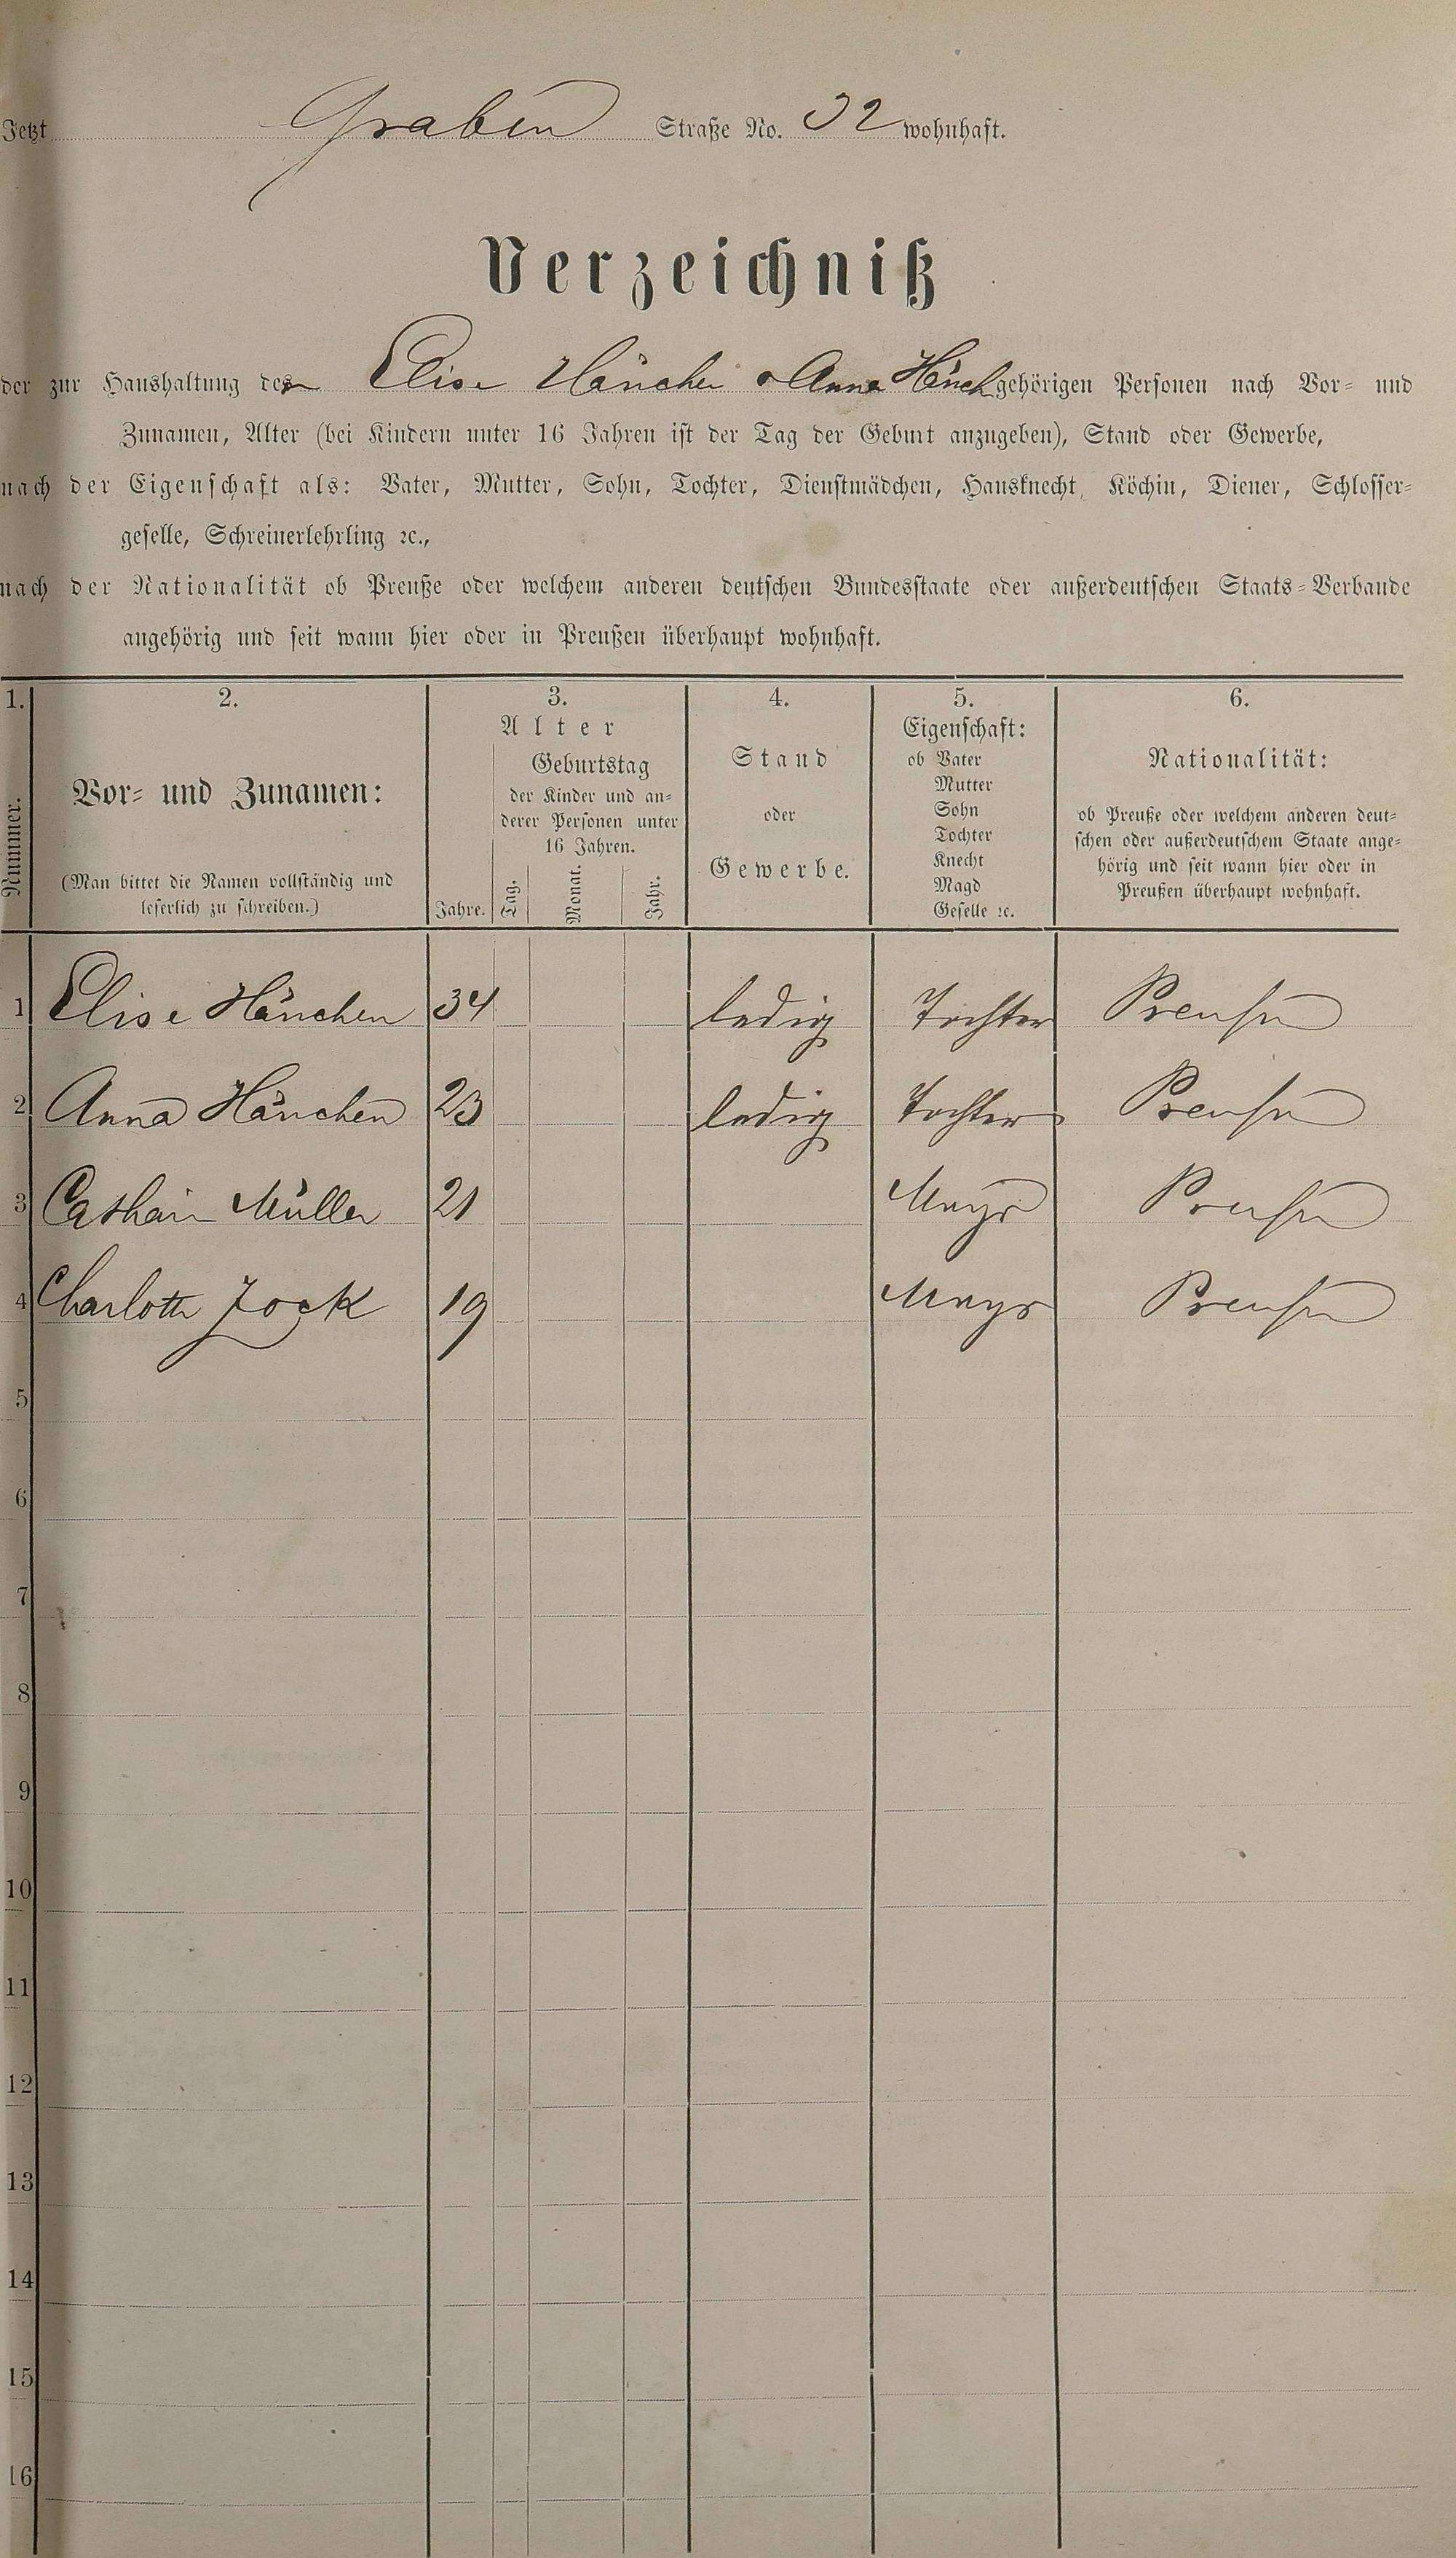 Jetzt Graben Straße No. 32 wohnhaft.
Verzeichniß
der zur Haushaltung der Elise Hänchen & Anna Hänch gehörigen Personen nach Vor- und
Zunamen, Alter (bei Kindern unter 16 Jahren ist der Tag der Geburt anzugeben), Stand oder Gewerbe,
nach der Eigenschaft als: Vater, Mutter, Sohn, Tochter, Dienstmädchen, Hausknecht, Köchin, Diener, Schlosser-
geselle, Schreinerlehrling ꝛc.,
nach der Nationalität ob Preuße oder welchem anderen deutschen Bundesstaate oder außerdeutschen Staats-Verbande
angehörig und seit wann hier oder in Preußen überhaupt wohnhaft.
1. 2. 3. 4. 5. 6.
Nummer.
Vor- und Zunamen:
(Man bittet die Namen vollständig und
leserlich zu schreiben.)
Alter
Jahre.
Geburtstag
der Kinder und an-
derer Personen unter
16 Jahren.
Tag. Monat. Jahr.
Stand
oder
Gewerbe.
Eigenschaft:
ob Vater
Mutter
Sohn
Tochter
Knecht
Magd
Geselle ꝛc.
Nationalität:
ob Preuße oder welchem anderen deut-
schen oder außerdeutschem Staate ange-
hörig und seit wann hier oder in
Preußen überhaupt wohnhaft.
1 Elise Hänchen 34 ledig Tochter Preußen
2 Anna Hänchen 23 ledig Tochter Preußen
3 Müller 21 Magd Preußen
4 Charlotte Jock 19 Magd Preußen
5
6
7
8
9
10
11
12
13
14
15
16